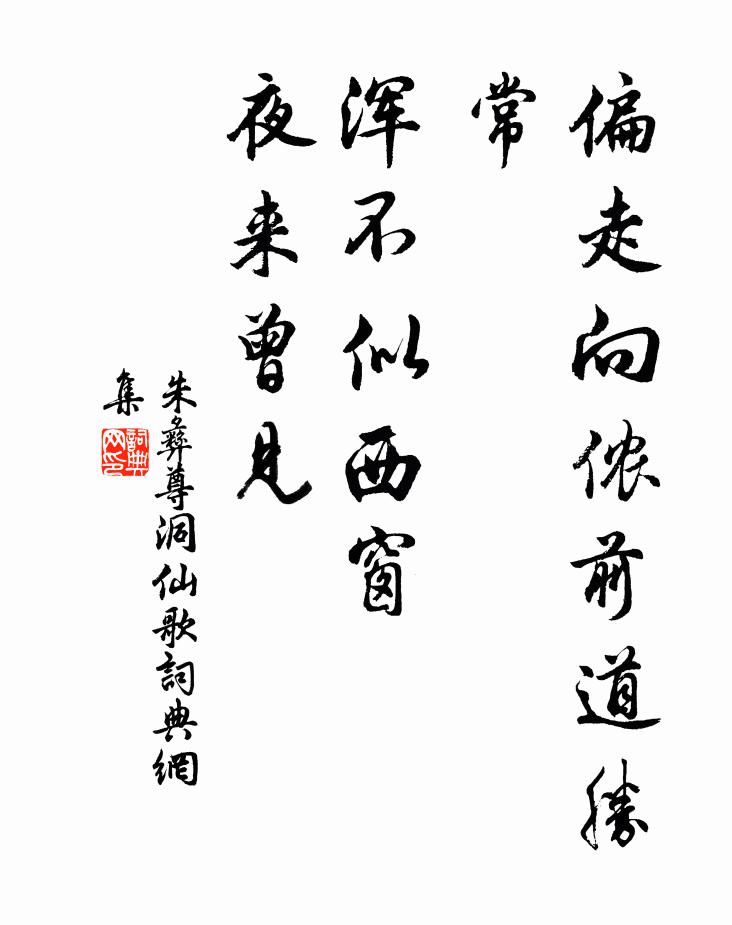 偏走向侬前道勝
常
浑不似西窗
夜来曾見
朱彝尊洞仙歌詞典網
集
詞典網印